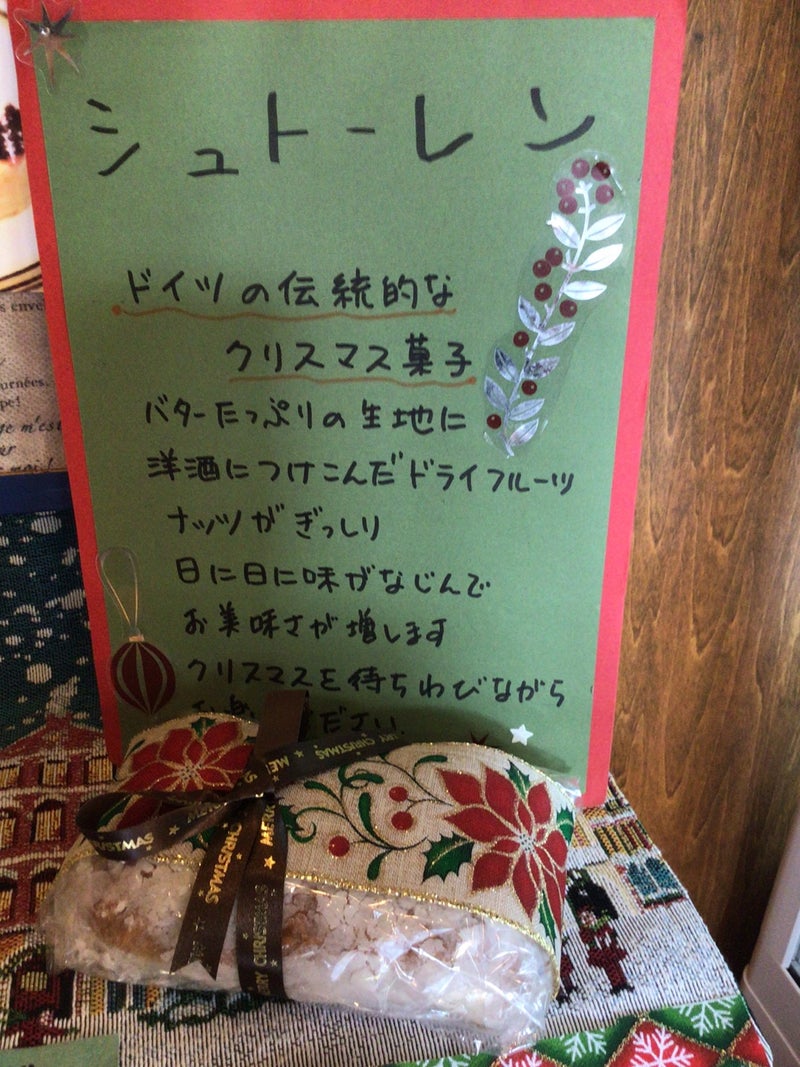 シュトーレン
ドイツの伝統的な
クリスマス菓子
バターたっぷりの生地に
洋酒につけこんだドライフルーツ
ナッツがぎっしり
日に日に味がなじんで
お美味さが増します
クリスマスを待ちわびながら
ださい
MERRY CHRISTMAS
CHRISTMAS
MERRY CHRISTMAS